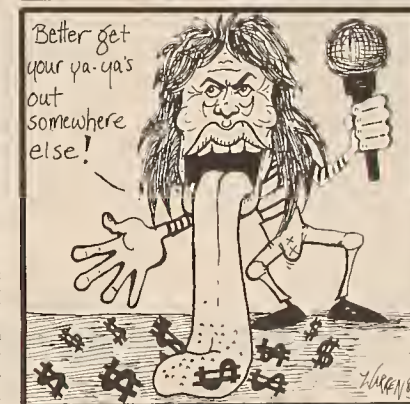 Better get
your ya-ya's
out
somewhere
else!
$ $ $ $ $
$ $ $ $ $
WARREN